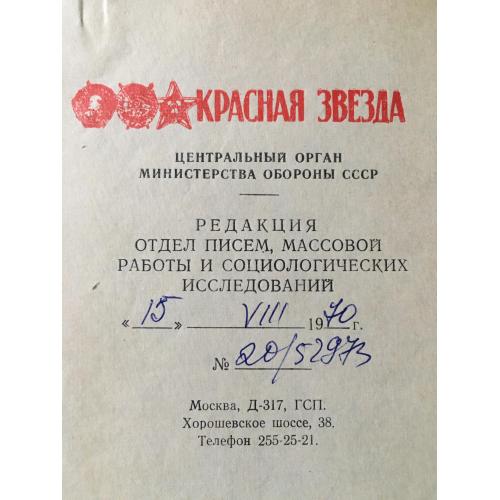 КРАСНАЯ ЗВЕЗДА
ЦЕНТРАЛЬНЫЙ ОРГАН
МИНИСТЕРСТВА ОБОРОНЫ СССР
РЕДАКЦИЯ
ОТДЕЛ ПИСЕМ, МАССОВОЙ
РАБОТЫ И СОЦИОЛОГИЧЕСКИХ
ИССЛЕДОВАНИЙ
«15» VIII 1970 г.
№ 20/52973
Москва, Д-317, ГСП.
Хорошевское шоссе, 38.
Телефон 255-25-21.